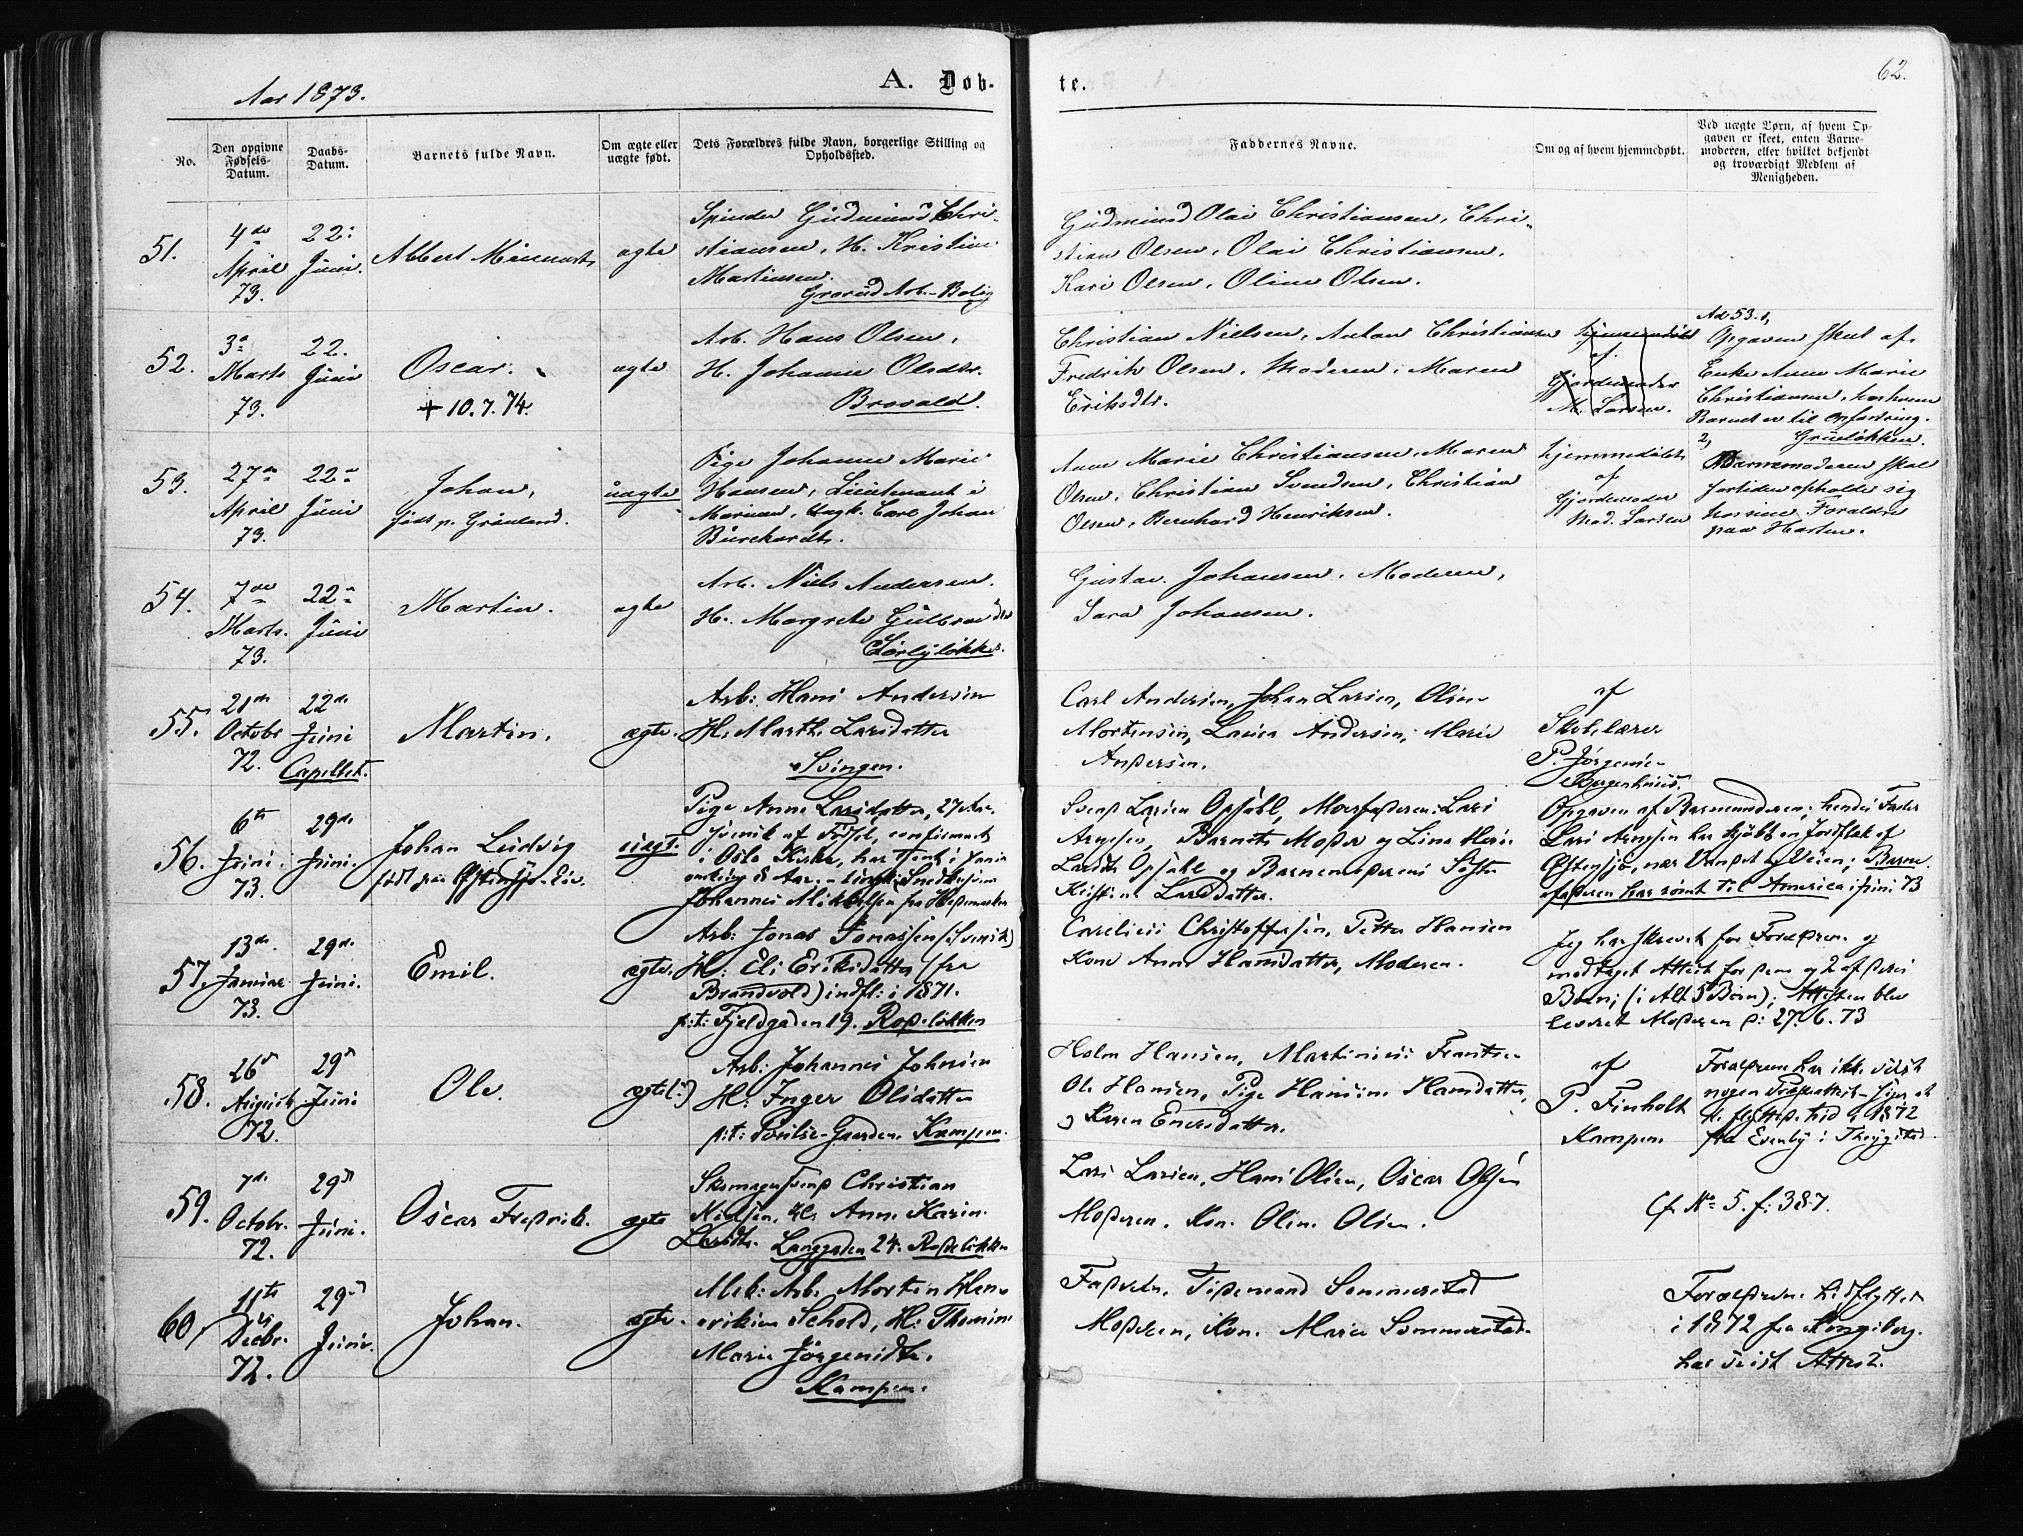 Aar 1873.
A. Døb-
te.
62.
No.
Den opgivne
Fødsels-
Datum.
Daabs-
Datum.
Barnets fulde Navn.
Om ægte eller
uægte født.
Dets Forældres fulde Navn, borgerlige Stilling og
Opholdssted.
Faddernes Navne.
Om og af hvem hjemmedøbt.
Ved uægte Børn, af hvem Op-
gaven er skeet, enten Barne-
moderen, eller hvilket bekjendt
og troværdigt Medlem af
Menigheden.
51.
4de
April
73.
22:
Juni.
Albert
ægte
Spinder Gudmund Chri-
stiansen, H. Kristine
Martinsen.
Grorud Arb.-Bolig
Gudmund Olai Christiansen, Chri-
stian Olsen, Olai Christiansen,
Kari Olsen, Oline Olsen.
52.
3e
Marts
73.
22.
Juni
Oscar.
+ 10.7.74.
ægte
Arb. Hans Olsen,
H. Johanne Olsdtr.
Brovold.
Christian Nielsen, Anton Christiansen
Fredrik Olsen, Moderen, Maren
Eriksdtr.
hjemmedøbt
af
Gjordemoder
M. Larsen.
Ad 53. 1,
Opgaven skeet af
Enke Anne Marie
Christiansen, hos hvem
Barnet er til Opfostring.
Grueløkken.
53.
27de
April
73.
22de
Juni
Johan,
født p. Grønland.
uægte
Pige Johanne Marie
Hansen, Lieutenant i
Marinen, Ungk. Carl Johan
Burchardt.
Anne Marie Christiansen, Maren
Olsen, Christian Svendsen, Christian
Olsen, Bernhard Henriksen.
hjemmedøbt
af
Gjordemoder
Mad. Larsen
2, Barnemoderen skal
fortiden opholde sig
hos sine Forældre
paa Horten.
54.
7de
Marts.
73.
22de
Juni
Martin.
ægte
Arb. Niels Andersen.
H. Margrete Gulbrandsd
Sørliløkken.
Gustav Johansen, Moderen,
Sara Johansen.
55.
21de
Octobr
72.
22de
Juni
Capellet.
Martin.
ægte.
Arb: Hans Andersen
H. Marthe Larsdatter
Svingen.
Carl Andersen, Johan Larsen, Oline
Mortensen, Laura Andersen, Marie
Andersen.
af
Skolelærer
P. Jørgensen
Borgenhuus.
56.
6te
Juni.
73.
29de
Juni.
Johan Ludvig
født paa Østensjø-Eie.
uægt.
Pige Anne Larsdatter, 27 Aar.
svensk af Fødsel, confirmeret
i Oslo Kirke, har tjent i Chria
omkring 8 Aar.
Johannes Mikkelsen fra Hedemarken
Svend Larsen Opsahl, Morfaderen: Lars
Arnesen, Barnets Moder og Lina Marie
Larsdtr Opsahl og Barnemoderens Søster
Kristine Larsdatter.
Opgaven af Barnemoderen; hendes Fader
Lars Arnesen har kjøbt en Jordflek af
Østensjø, nær Vandet og Veien; Barne-
faderen har rømt til America i juni 73
57.
13de
Januar
73.
29de
Juni.
Emil.
ægte.
Arb: Jonas Jonassen (Svensk)
H: Eli Eriksdatter (fra
Brandvold) indfl: i 1871.
p: t: Fjeldgaden 19. Rodeløkken
Cornelius Christoffersen, Petter Hansen
Kone Anne Hansdatter, Moderen.
Jeg har skrevet for Forældrene og
modtaget Attest for dem og 2 af deres
Børn; (i Alt 5 Børn); Attesten blev
leveret Moderen d: 27. 6. 73
58.
26d
August
72.
29d
Juni
Ole.
ægte
Arb: Johannes Johnsen
H: Inger Olsdatter
p: t: Poulse-Gaarden. Kampen.
Holm Hansen, Martinius Frantsen
Ole Hansen, Pige Hansine Hansdatter,
og Karen Enersdatter.
af
P. Finholt
Kampen.
Forældrene har ikke vist
nogen Flytteattest. Siger at
de flyttede hid i 1872
fra Evenby i Trøgstad.
59.
7de
Octobr.
72.
29d
Juni.
Oscar Fredrik.
ægte
Skomagersvend Christian
Nielsen, H: Anne Karine
Larsdtr. Langgaden 24. Rodeløkken
Lars Larsen, Hans Olsen, Oscar Olsen
Moderen, Kone Oline Olsen.
Cf. No 5. f: 387.
60,
11te
Decbr.
72.
29d
Juni.
Johan.
ægte.
Mek: Arb: Morten Hen-
riksen Schold, H: Thomine
Marie Jørgensdtr.
Kampen.
Faderen, Tidemand Sommerstad
Moderen, Kone Marie Sommerstad.
Forældrene hidflyttet
i 1872 fra Kongsberg.
har viist Attest.